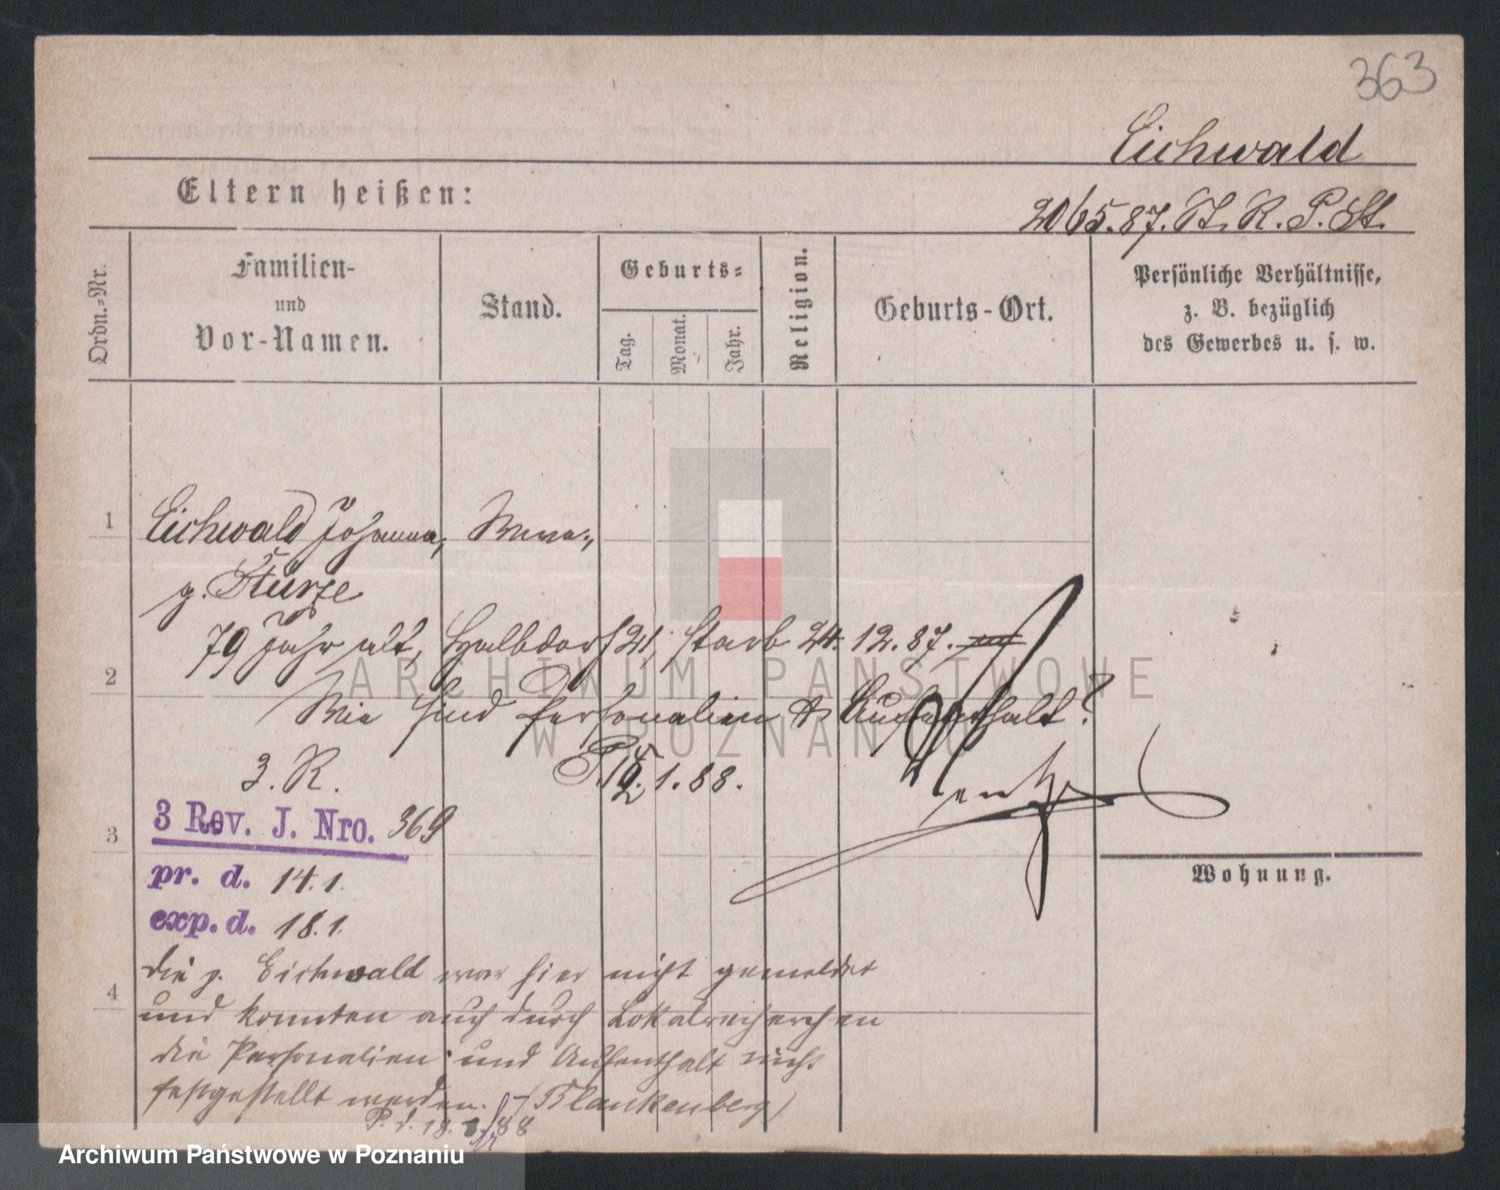 363
Eichwald
Eltern heißen:
2065.87. St. R. P. St.
Ordn.-Nr.
Familien-
und
Vor-Namen.
Stand.
Geburts-
Tag.
Monat.
Jahr.
Religion.
Geburts-Ort.
Persönliche Verhältnisse,
z. B. bezüglich
des Gewerbes u. s. w.
1
Eichwald Johanna, Wwe.,
g. Sturze
79 Jahr alt, Halbdorf 21, starb 24. 12. 87.
2
Wie sind Personalien & Aufenthalt?
3. R.
P. 12. 1. 88.
3 Rev. J. Nro. 369
3
pr. d. 14. 1.
exp. d. 18. 1.
Wohnung.
die p. Eichwald war hier nicht gemeldet
4
und konnten auch durch Lokalrecherchen
die Personalien und Aufenthalt nicht
festgestellt werden. (Blankenberg)
P. d. 18. 1. 88
ARCHIWUM PAŃSTWOWE
W POZNANIU
Archiwum Państwowe w Poznaniu